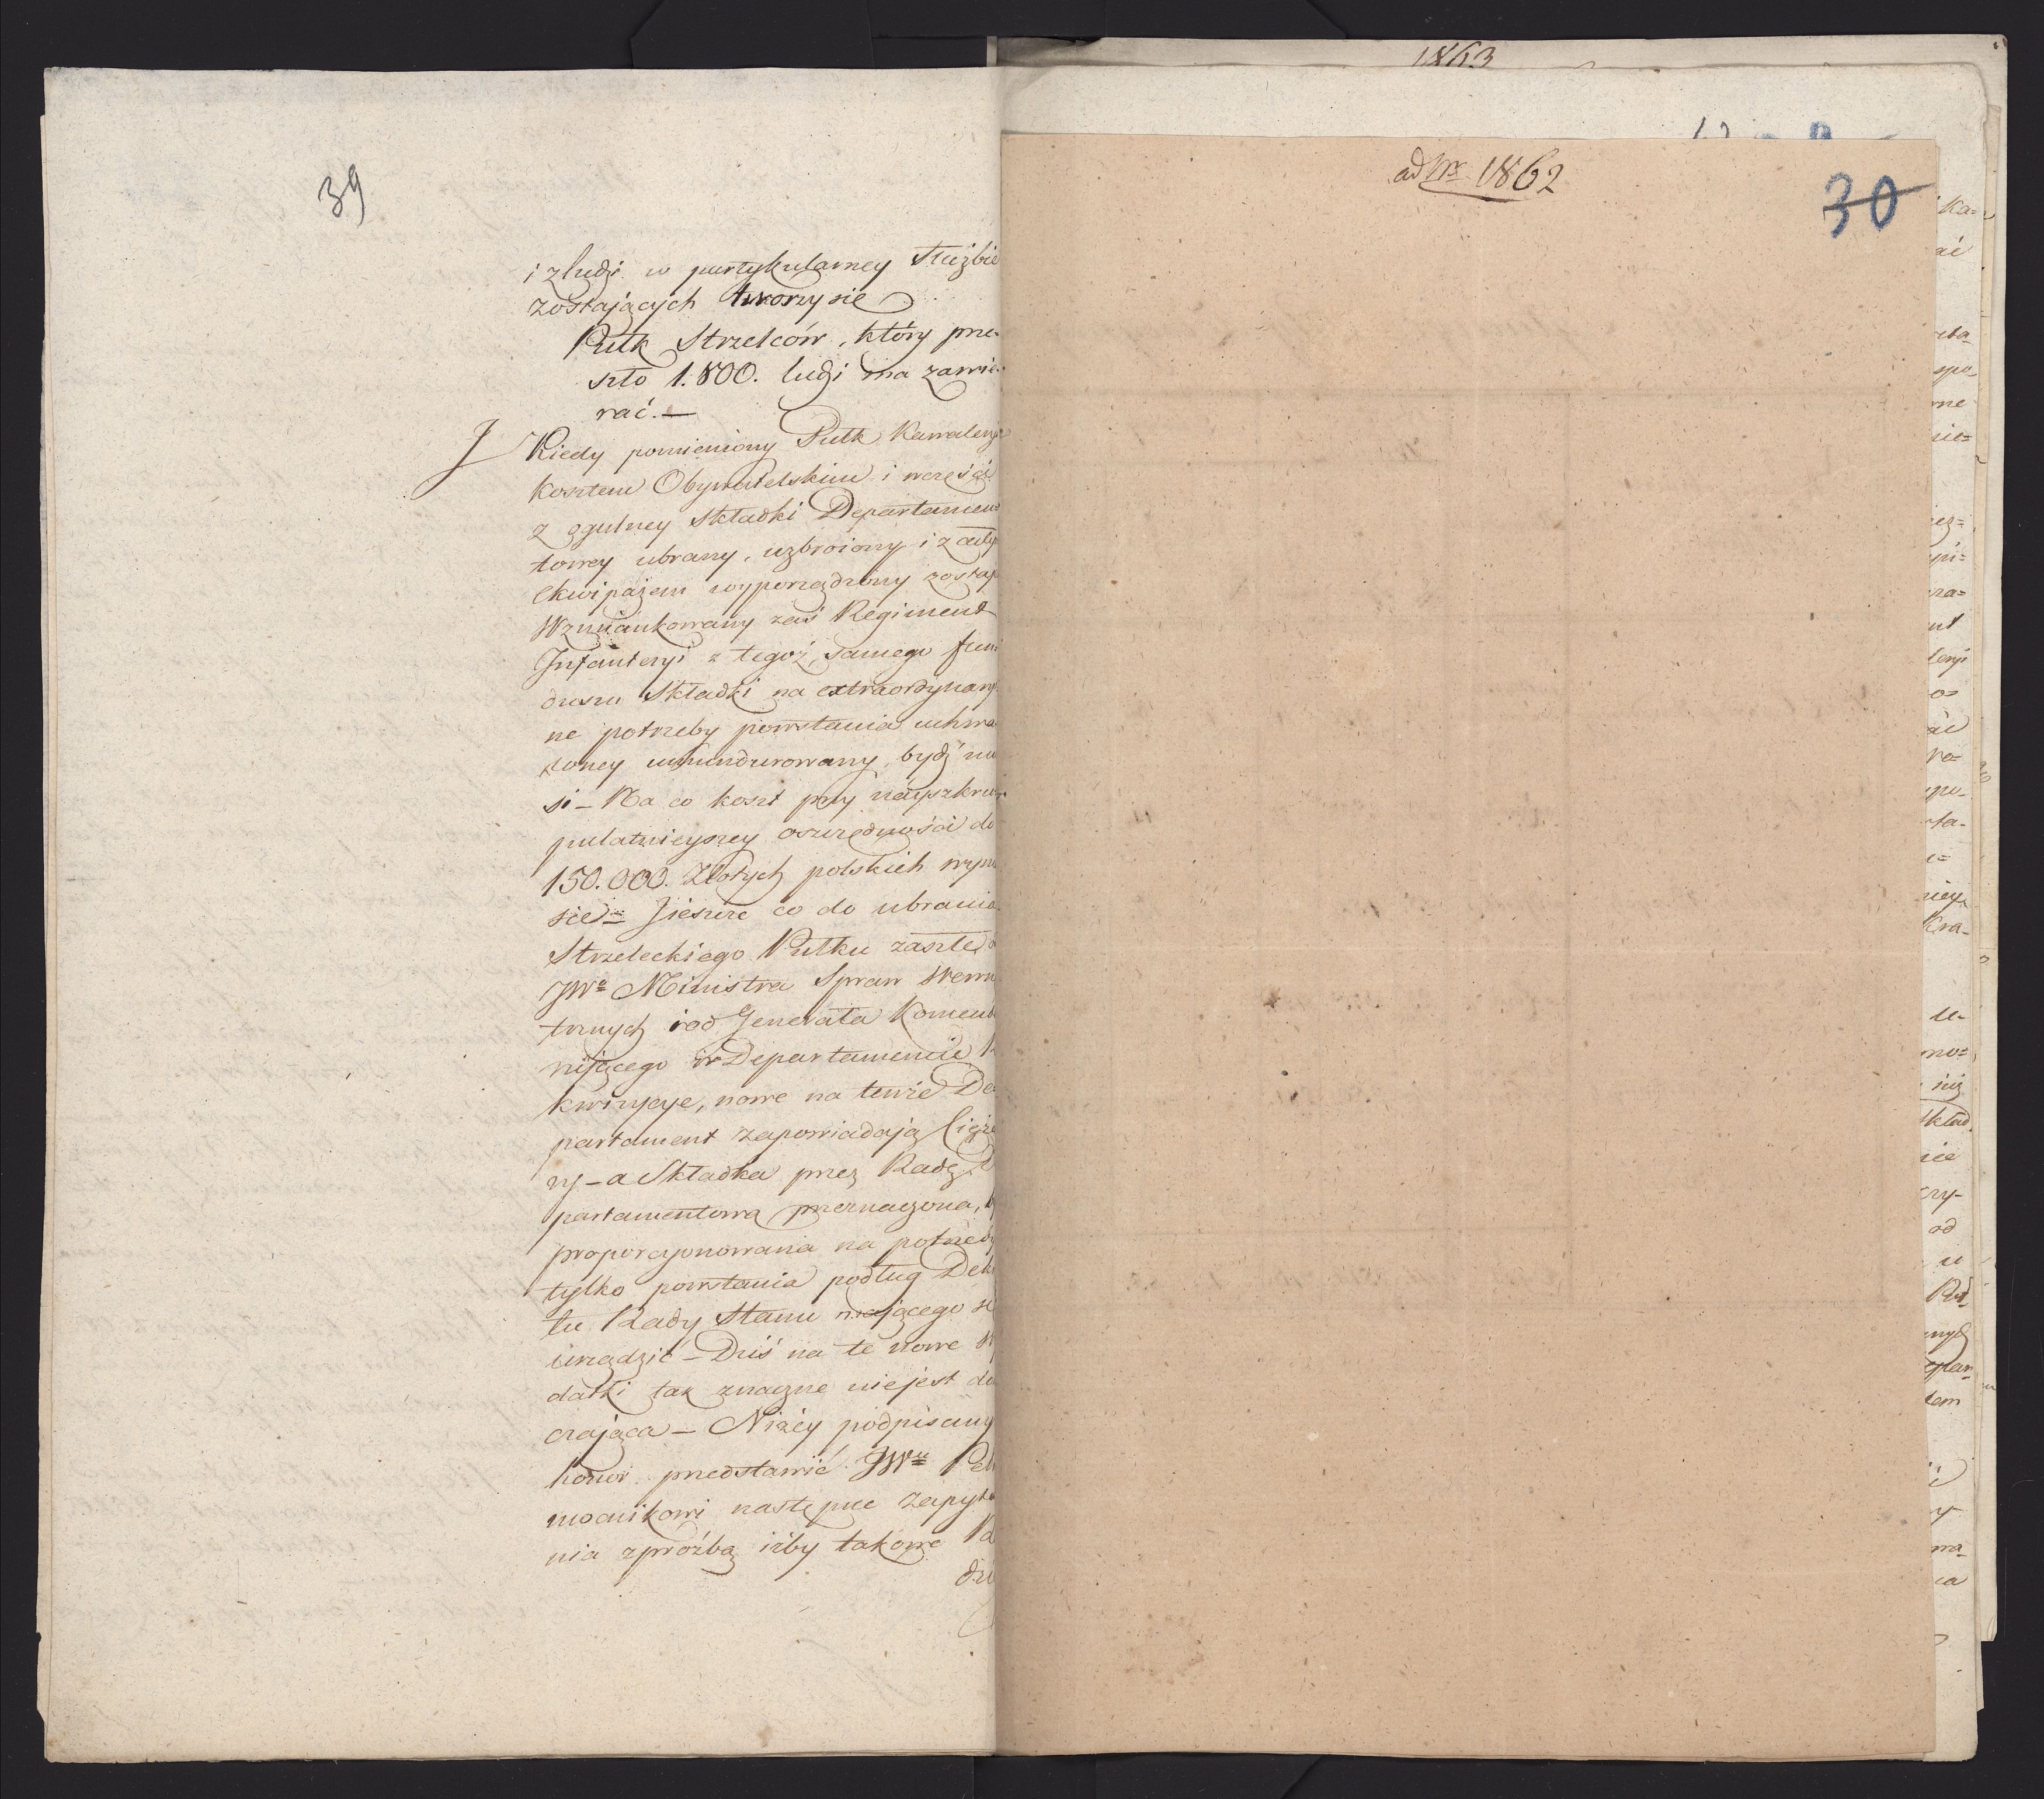 39
i z ludzi w partykularney Służbie
zostających tworzy sie
Pułk Strzelców, który prze-
szło 1.800. ludzi ma zawie-
rać. —
Kiedy pomieniony Pułk Kawalery
kosztem Obywatelskim i wczęści
z ogulney składki Departamen-
towey ubrany, uzbroiony i z całym
ekwipażem wyporządzony zostaje
Wzmiankowany zaś Regiment
Infanteryi z tegoż samego fun
duszu Składki na extraordynary-
ne potrzeby powstania uchwa
loney umundurowany, bydź mu
si — Na co koszt przy nayszkru-
pulatnieyszey oszczędności do
150.000. Złotych polskich wynie
sie = Jieszcze co do ubrania
Strzeleckiego Pułku zaszłe o
JWo Ministra Spraw Wewnę
trznych i od Generała Komend
rującego w Departamencie R
kwizycye, nowe na tenże De-
partament zapowiadają Cięża
ry — a Składka przez Radę D
partamentową przeznaczona, b
proporcyonowana na potrzeby
tylko powstania podług Dekre
tu Rady Stanu mającego si
urządzić — Dziś na te nowe wy
datki tak znaczne niejest do
czająca — Niżéy podpisany
honor przedstawić JWu Peł
mocnikowi następne zapyta
nia z prośbą iżby takowe Ra
dzi
1863
ad Nr 1862
30
Ka-
ać
spo-
rne
nie=
ra=
nt
teryi
o=
ać
ro=
ypo-
ta-
niey
Kra-
u-
mo=
iuż
skład
nie
czy-
od
u
Pod-
nych
epar-
tem
y
wa-
ca